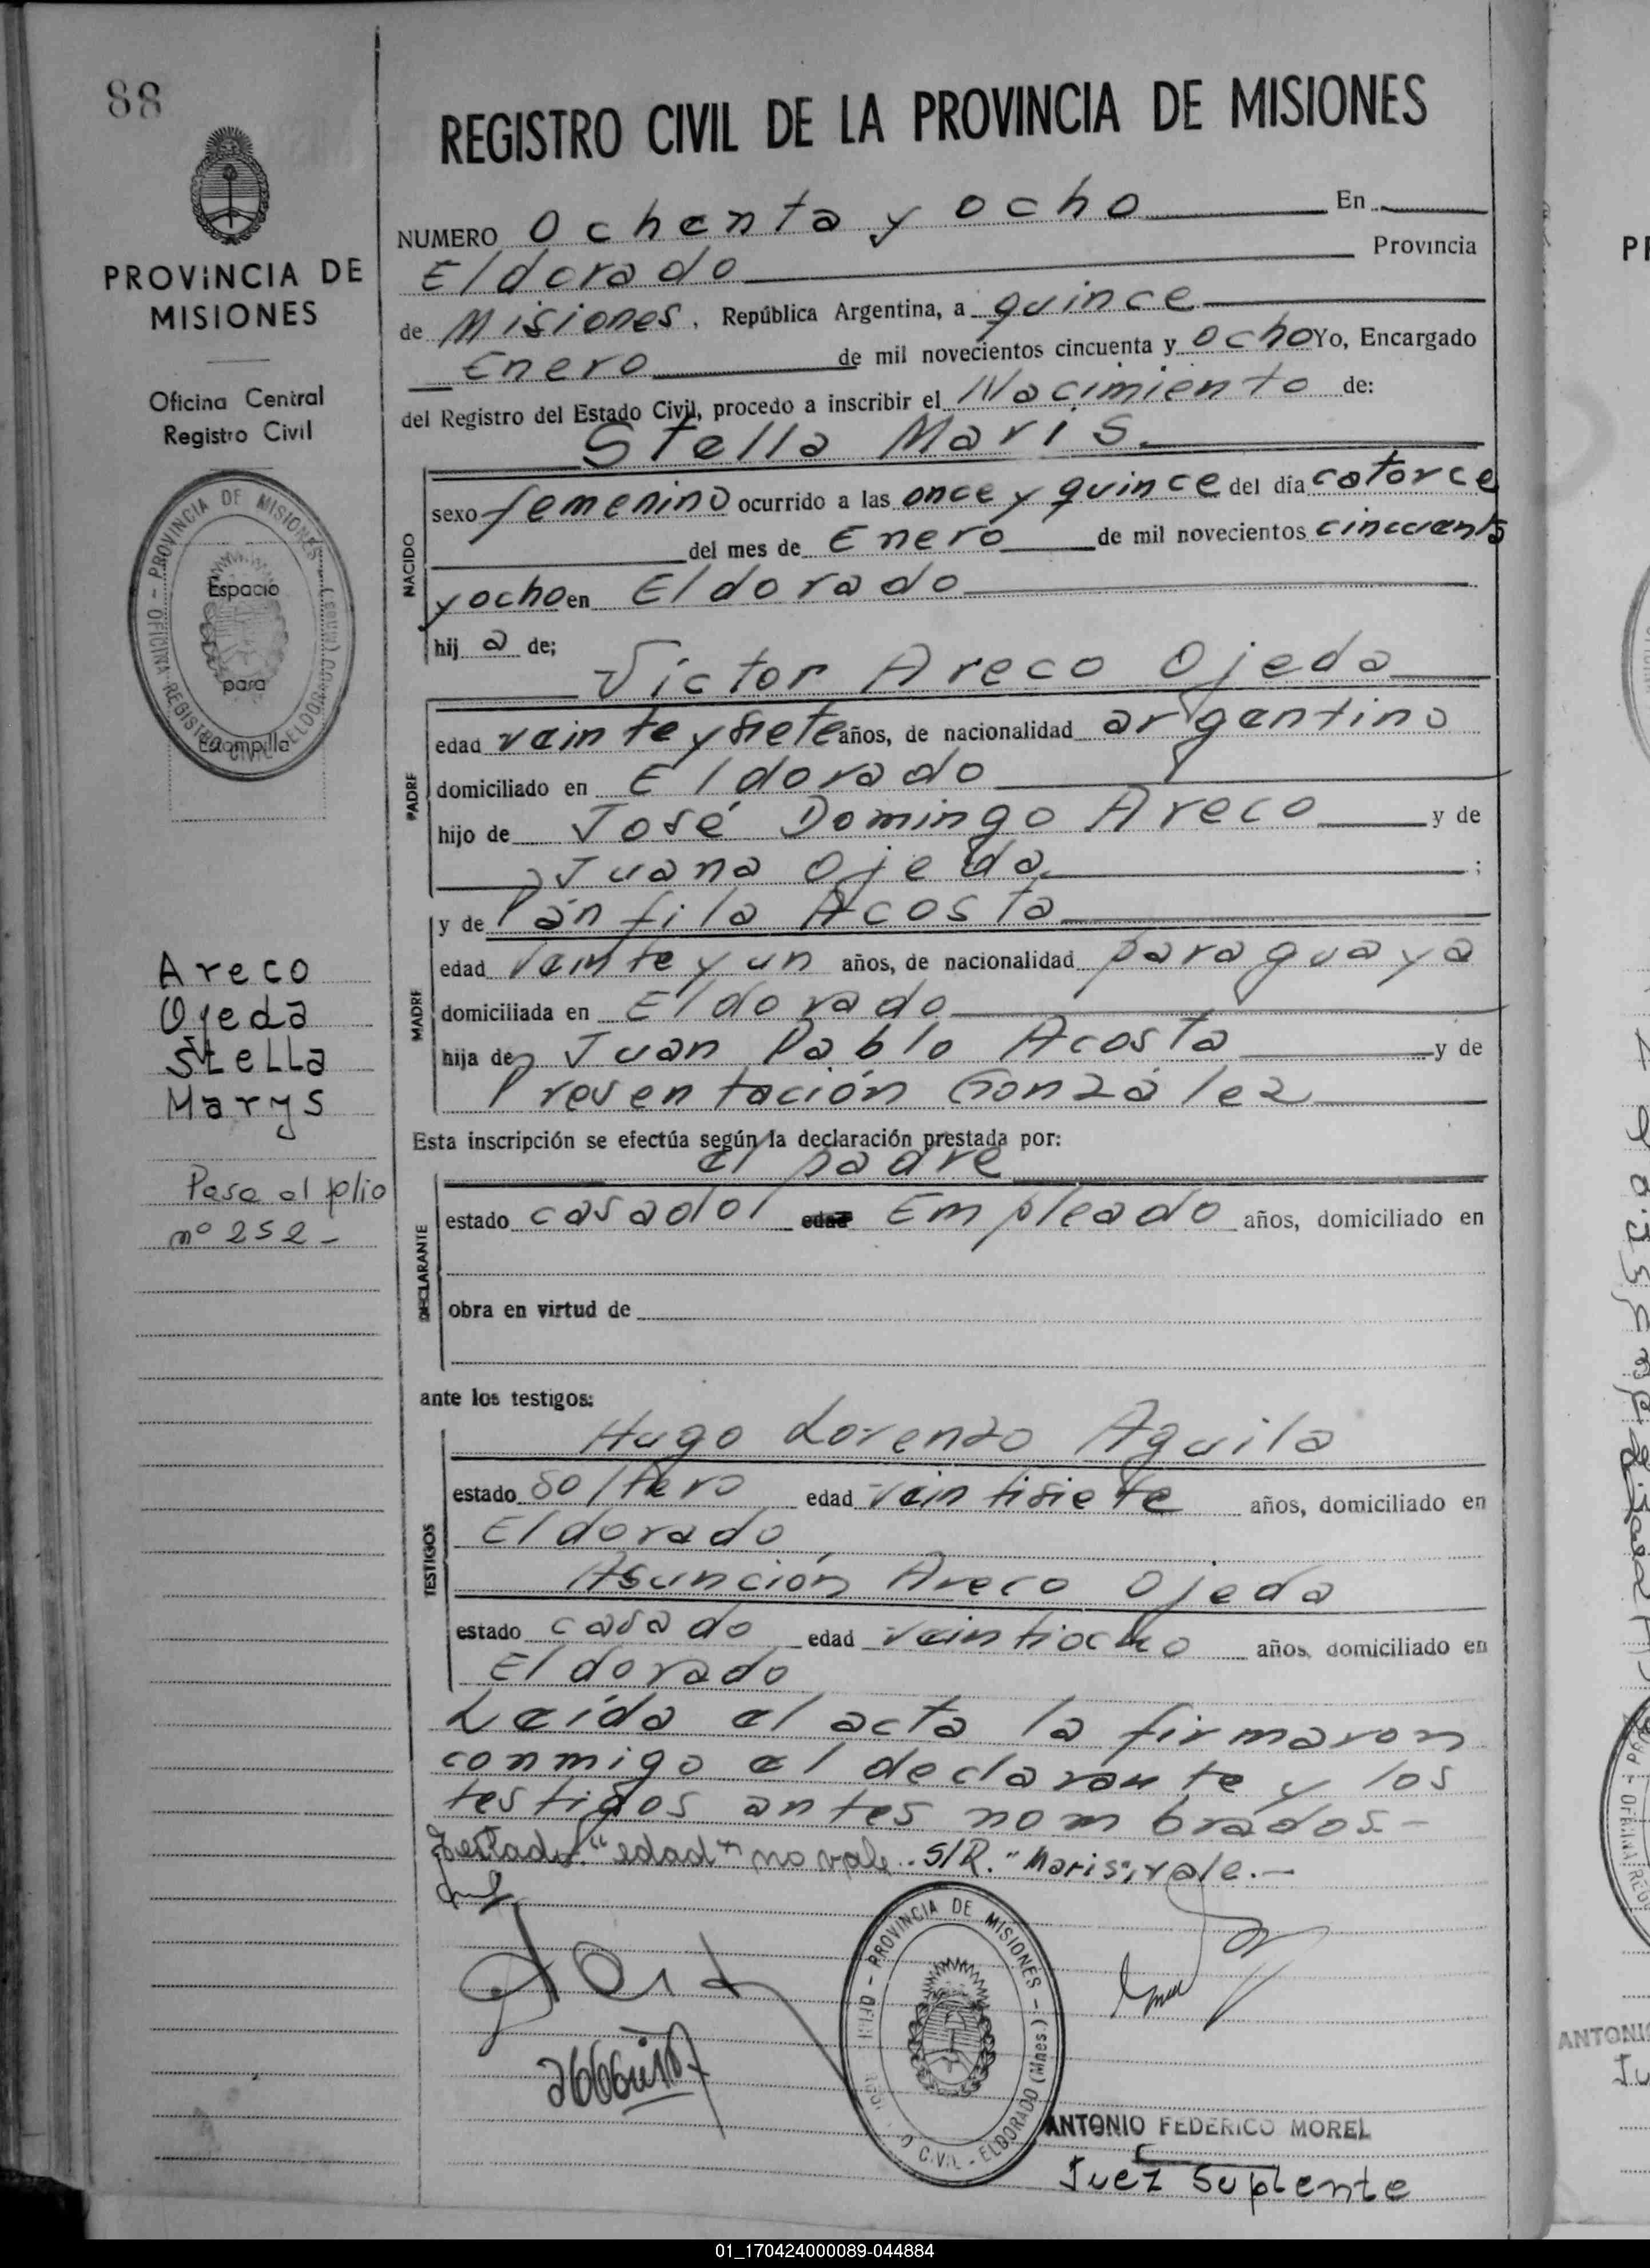 88
PROVINCIA DE
MISIONES
Oficina Central
Registro Civil
OFICINA REGISTRO CIVIL - ELDORADO (Mnes.) - PROVINCIA DE MISIONES
Espacio
para
Estampilla
Areco
Ojeda
Stella
Marys
Pasa al folio
nº 252-
REGISTRO CIVIL DE LA PROVINCIA DE MISIONES
NUMERO Ochenta y ocho En
Eldorado Provincia
de Misiones, República Argentina, a quince
Enero de mil novecientos cincuenta y ocho Yo, Encargado
del Registro del Estado Civil, procedo a inscribir el Nacimiento de:
Stella Maris.
NACIDO
sexo femenino ocurrido a las once y quince del día catorce
del mes de Enero de mil novecientos cincuenta
y ocho en Eldorado
hij a de;
Victor Areco Ojeda
PADRE
edad veinte y siete años, de nacionalidad argentino
domiciliado en Eldorado
hijo de José Domingo Areco y de
Juana Ojeda ;
MADRE
y de Pánfila Acosta
edad veinte y un años, de nacionalidad paraguaya
domiciliada en Eldorado
hija de Juan Pablo Acosta y de
Presentación González
Esta inscripción se efectúa según la declaración prestada por:
el padre
DECLARANTE
estado casado edad Empleado años, domiciliado en
obra en virtud de
ante los testigos:
Hugo Lorenzo Aguila
TESTIGOS
estado soltero edad veintisiete años, domiciliado en
Eldorado
Asunción Areco Ojeda
estado casado edad veintiocho años, domiciliado en
Eldorado
Leída el acta la firmaron
conmigo el declarante y los
testigos antes nombrados.-
Testado: "edad" no vale. S/R. "Maris", vale.-
OFICINA REGISTRO CIVIL - ELDORADO (Mnes.) - PROVINCIA DE MISIONES
ANTONIO FEDERICO MOREL
Juez Suplente
01_170424000089-044884